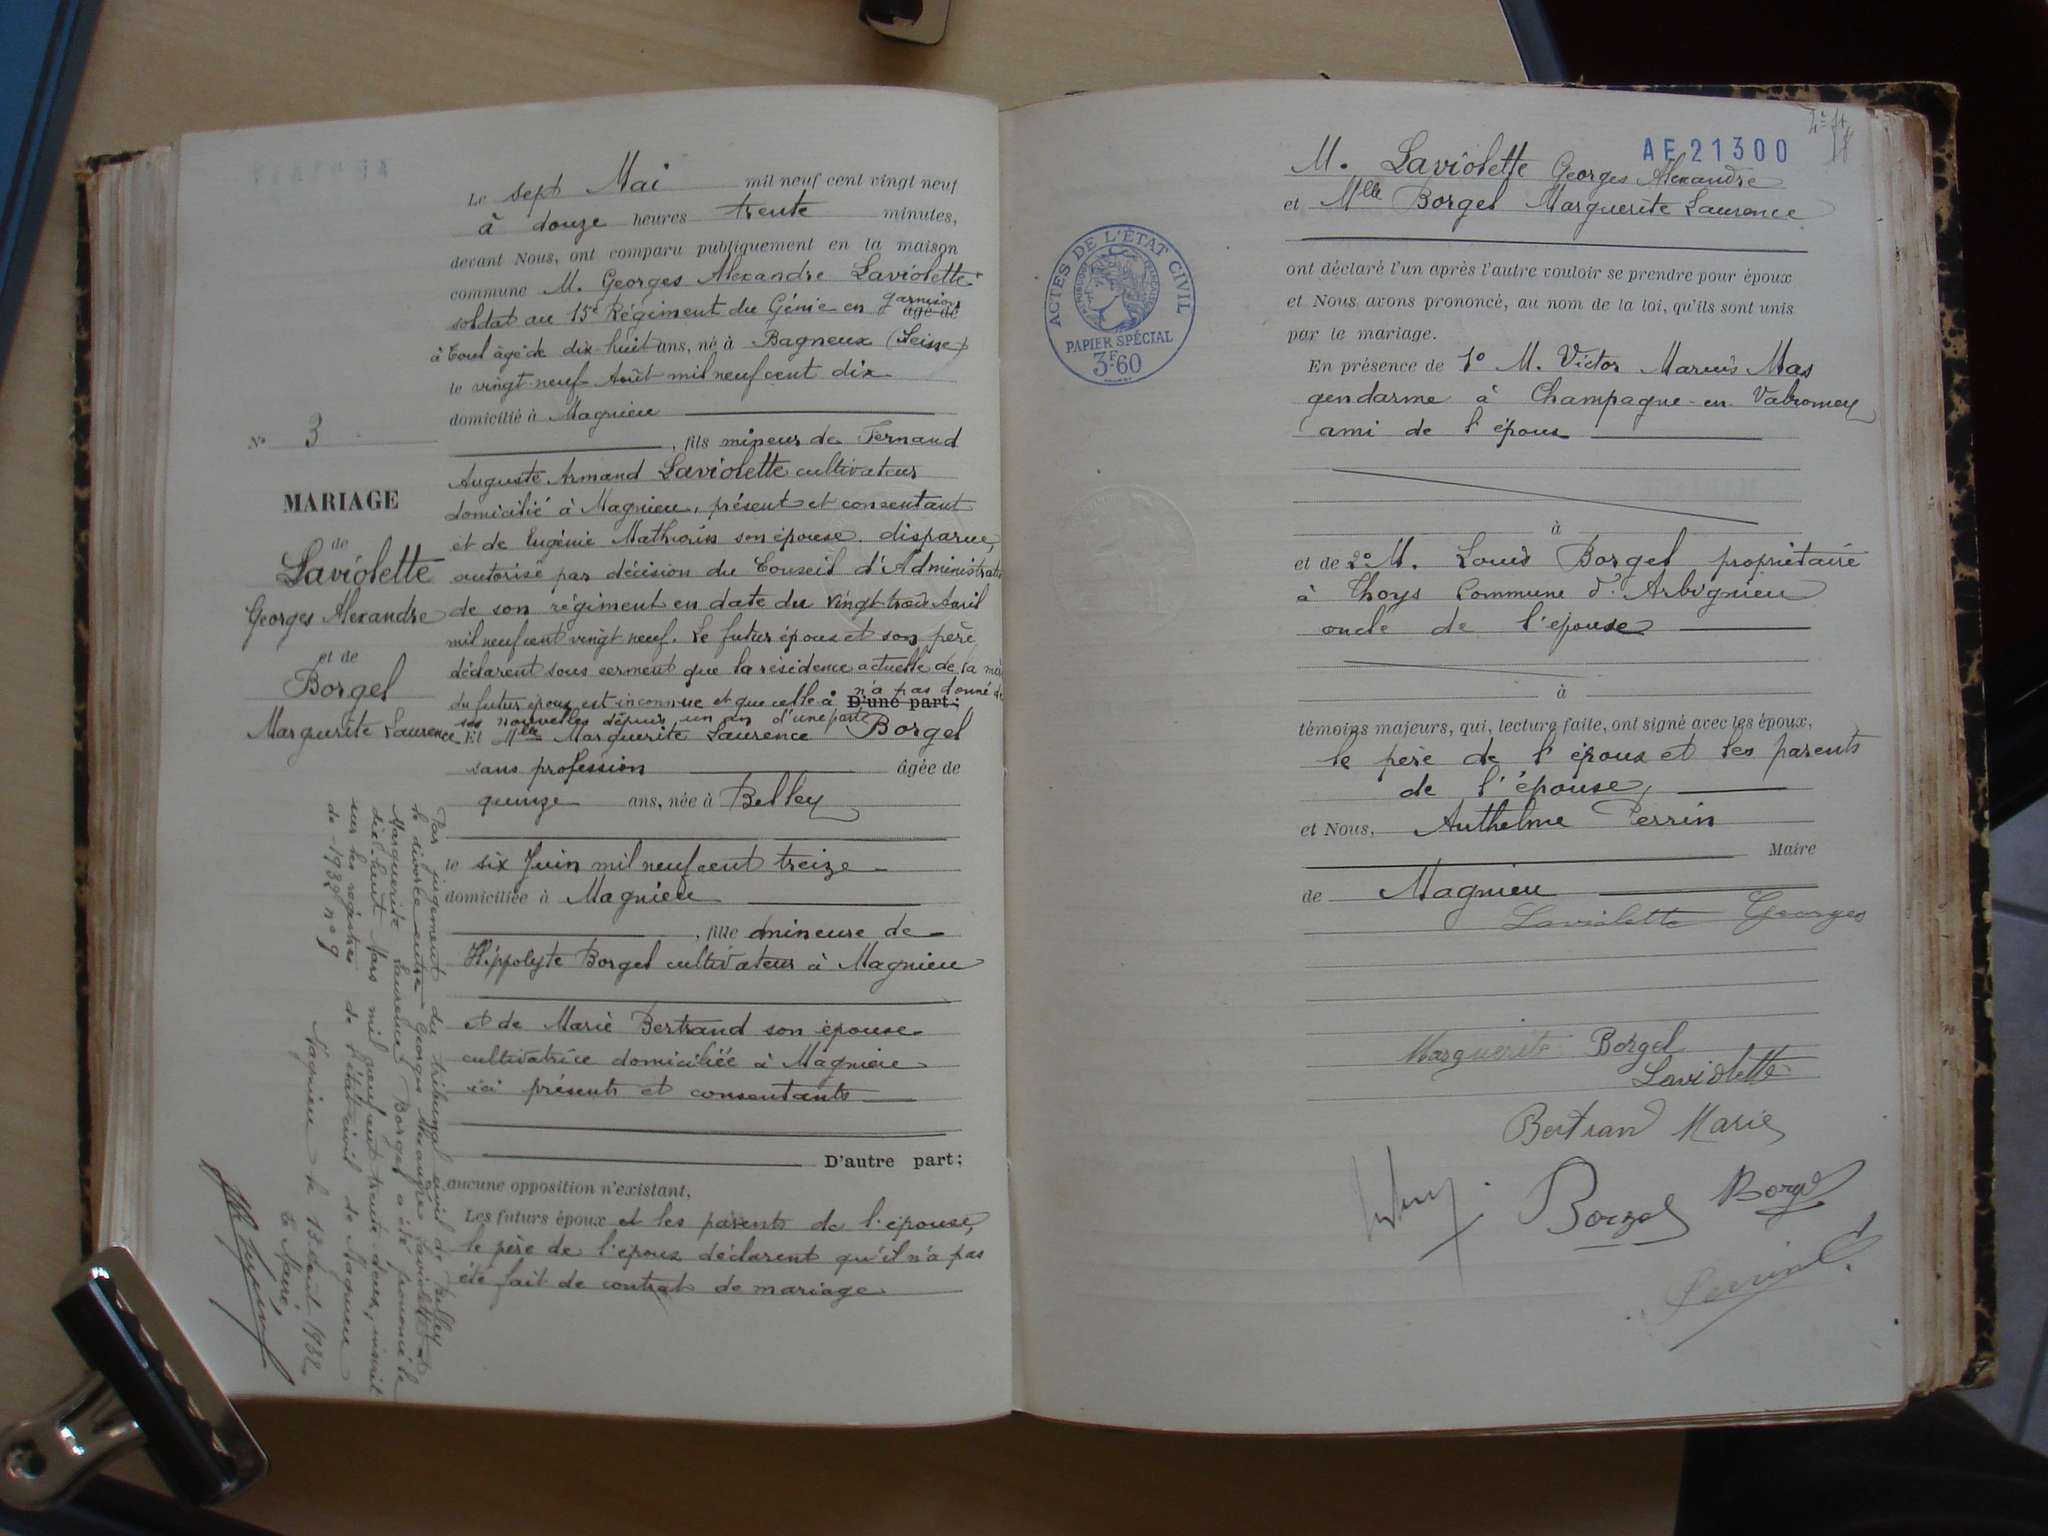 Le sept Mai mil neuf cent vingt neuf
à douze heures trente minutes,
devant Nous, ont comparu publiquement en la maison
commune M. Georges Alexandre Laviolette
soldat au 15e Régiment du Génie en garnison
âgé de
à Toul âgé de dix-huit ans, né à Bagneux (Seine)
le vingt-neuf Août mil neuf cent dix
domicilié à Magnieu
, fils mineur de Fernand
Auguste Armand Laviolette cultivateur
domicilié à Magnieu, présent et consentant
et de Eugénie Mathurin son épouse disparue,
autorisé par décision du Conseil d'Administration
de son régiment en date du vingt-trois Avril
mil neuf cent vingt neuf. Le futur époux et son père
déclarent sous serment que la résidence actuelle de la mère
du futur époux est inconnue et que celle-ci n'a pas donné de
D'une part;
ses nouvelles depuis un an d'une part
Et Mlle Marguerite Laurence Borgel
sans profession âgée de
quinze ans, née à Belley
le six Juin mil neuf cent treize
domiciliée à Magnieu
, fille mineure de
Hippolyte Borgel cultivateur à Magnieu
et de Marie Bertrand son épouse
cultivatrice domiciliée à Magnieu
ici présents et consentants
D'autre part;
aucune opposition n'existant,
Les futurs époux et les parents de l'épouse,
le père de l'époux déclarent qu'il n'a pas
été fait de contrat de mariage
No 3
MARIAGE
de
Laviolette
Georges Alexandre
et de
Borgel
Marguerite Laurence
Par jugement du tribunal civil de Belley
le divorce entre Georges Alexandre Laviolette et
Marguerite Laurence Borgel a été prononcé le
dix huit Mars mil neuf cent trente deux, inscrit
sur les registres de l'état civil de Magnieu
de 1932 no 9
Magnieu le 13 Août 1932
Le Maire,
AE 21300
M. Laviolette Georges Alexandre
et Mlle Borgel Marguerite Laurence
ont déclaré l'un après l'autre vouloir se prendre pour époux
et Nous avons prononcé, au nom de la loi, qu'ils sont unis
par le mariage.
En présence de 1o M. Victor Marius Mas
gendarme à Champagne-en-Valromey
ami de l'époux
à
et de 2o M. Louis Borgel propriétaire
à Thoys Commune d'Arbignieu
oncle de l'épouse
à
témoins majeurs, qui, lecture faite, ont signé avec les époux,
le père de l'époux et les parents
de l'épouse,
et Nous, Anthelme Perrin
Maire
de Magnieu
Laviolette Georges
Marguerite Borgel
Laviolette
Bertrand Marie
Borgel Borgel
Perrin
ACTES DE L'ÉTAT CIVIL
RÉPUBLIQUE FRANÇAISE
PAPIER SPÉCIAL
3F.60